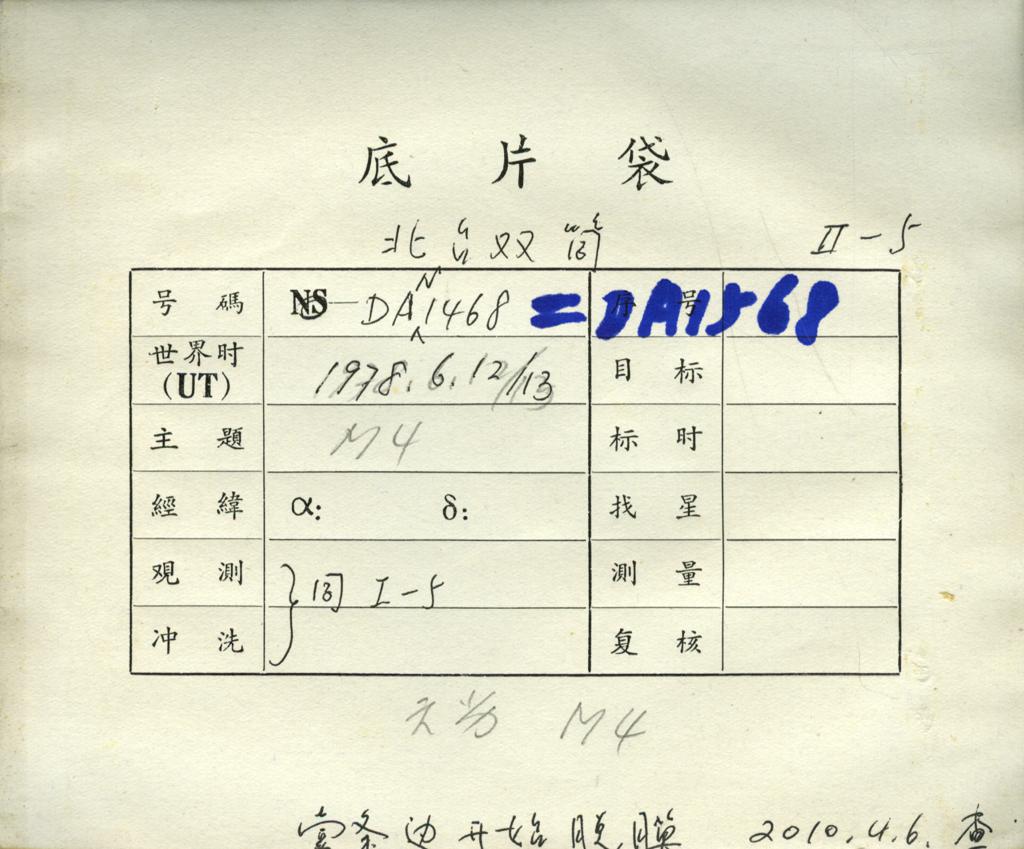 底 片 袋
北台双筒 II-5
号碼 NS — DAN1468 = DA1568 序号
世界时(UT) 1978.6.12/13 目标
主題 M4 标时
經緯 α: δ: 找星
观測 同 I-5 測量
冲洗 复核
M4
条边开始脱膜 2010.4.6. 查